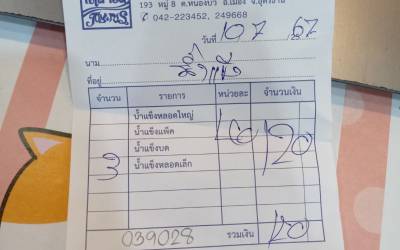 193 หมู่ 8 ต.หนองบัว อ.เมือง จ.อุดรธานี
✆ 042-223452, 249668
วันที่ 10 7 67
นาม
ที่อยู่
จำนวน รายการ หน่วยละ จำนวนเงิน
น้ำแข็งหลอดใหญ่
น้ำแข็งแพ็ค
น้ำแข็งบด
3 น้ำแข็งหลอดเล็ก 40 120
039028 รวมเงิน 120